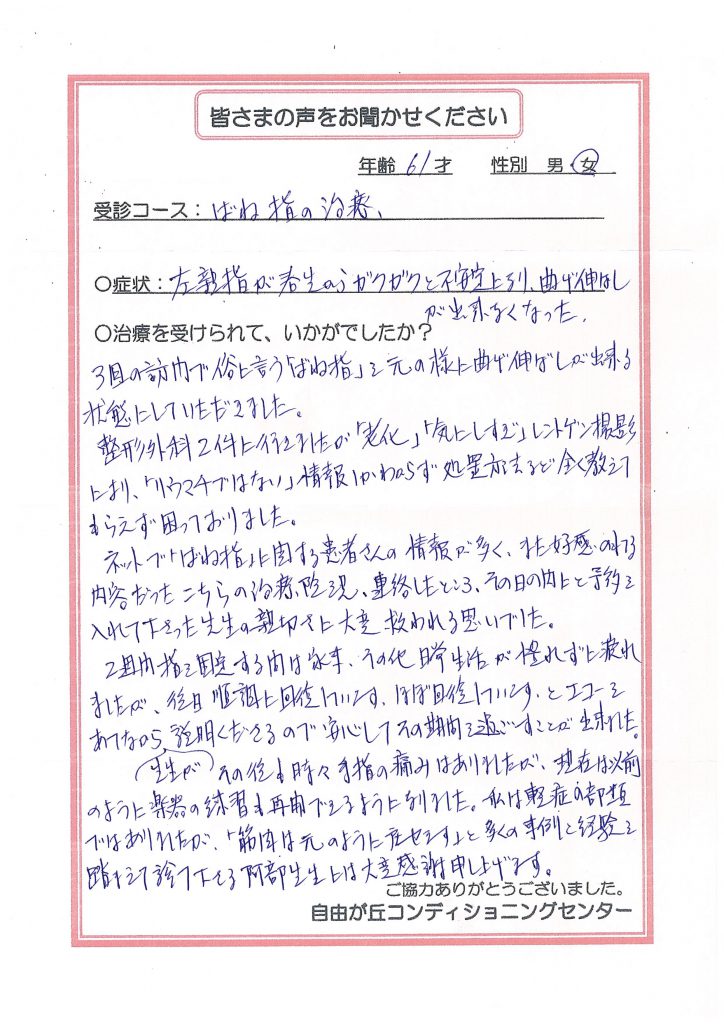 皆さまの声をお聞かせください
年齢 61 才 性別 男・女
受診コース：ばね指の治療、
〇症状：左親指が ガクガクと不安定になり、曲げ伸ばし
が出来なくなった。
〇治療を受けられて、いかがでしたか？
3回の訪問で俗に言う「ばね指」を元の様に曲げ伸ばしが出来る
状態にしていただきました。
整形外科2件に行きましたが「老化」「気にしすぎ」レントゲン撮影
により、「リウマチではない」情報しかわからず処置方法など全く教えて
もらえず困っておりました。
ネットで「ばね指」に関する患者さんの情報が多く、また好感のもてる
内容だったこちらの治療院を 、連絡したところ、その日の内にと予約を
入れて下さった先生の親切さに大変救われる思いでした。
2週間指を固定する間は家事、その他日常生活が慣れずに疲れ
ましたが、後日「順調に回復しています、ほぼ回復しています」とエコーを
あてながら説明くださるので安心してその期間を過ごすことが出来ました。
先生が
その後も時々手指の痛みはありましたが、現在は以前
のように楽器の練習も再開できるようになりました。私は軽症の部類
ではありましたが、「筋肉は元のように 」と多くの事例と経験を
踏まえて診て下さる阿部先生には大変感謝申し上げます。
ご協力ありがとうございました。
自由が丘コンディショニングセンター